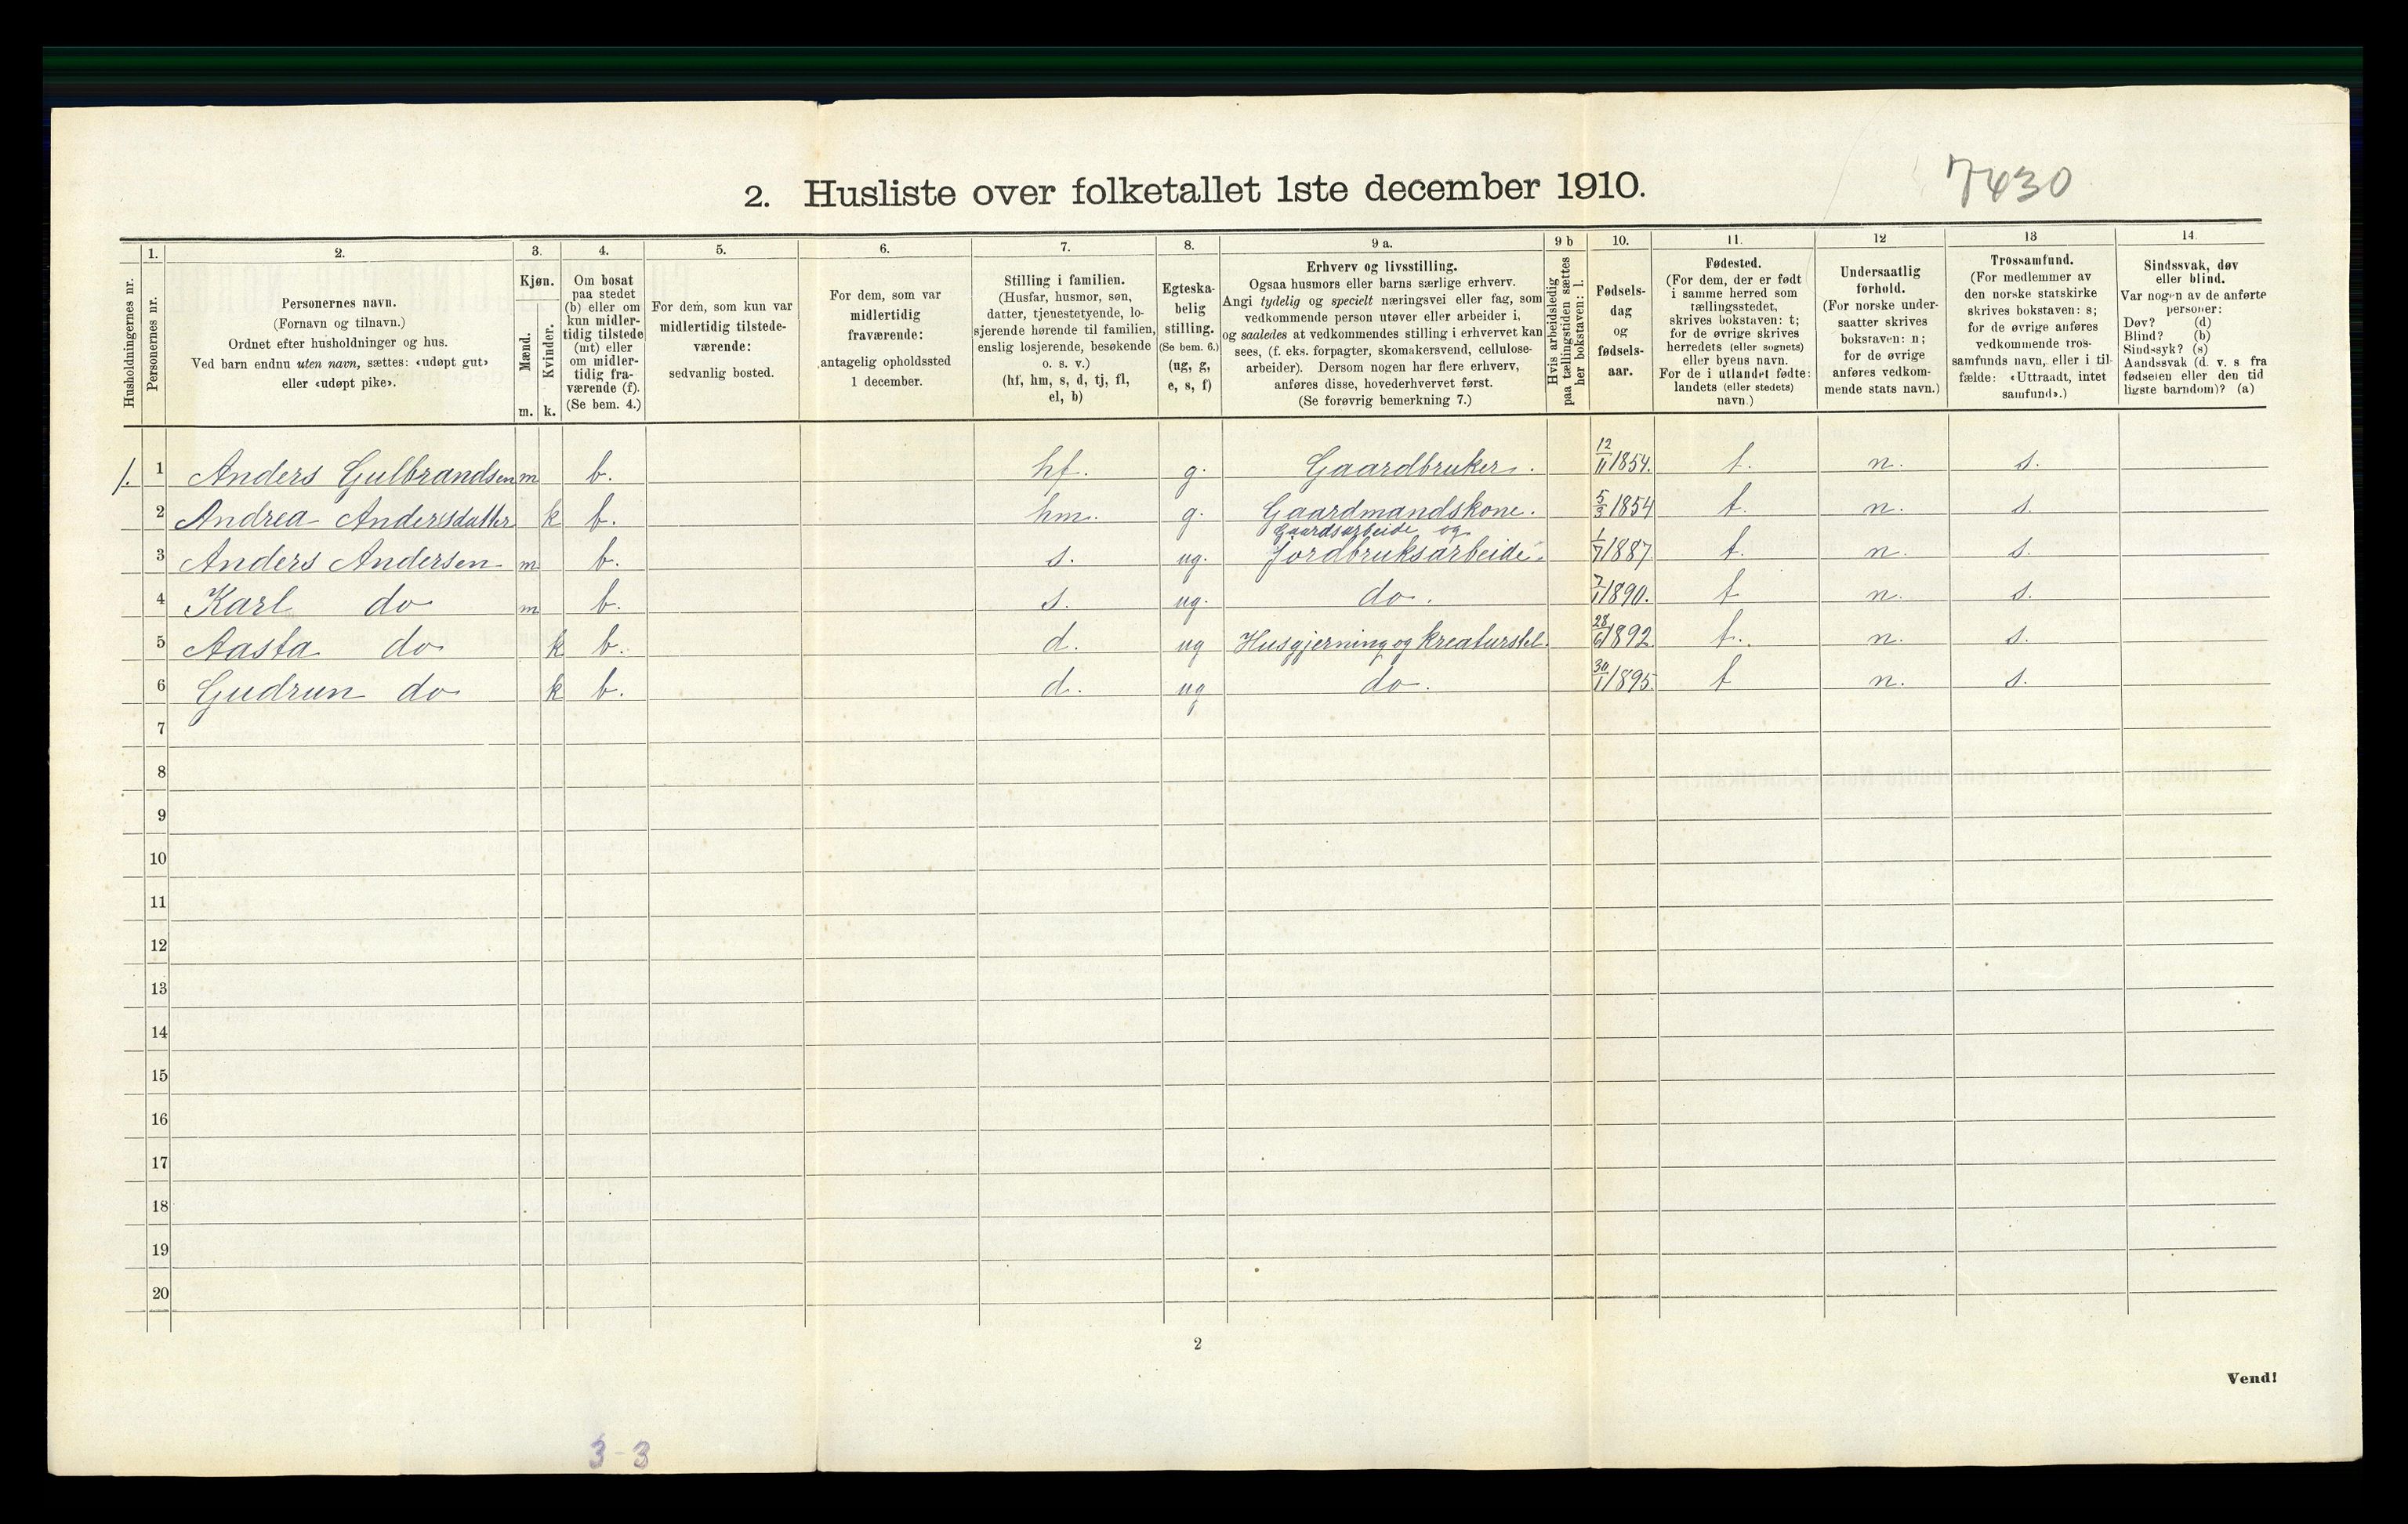 7430
2. Husliste over folketallet 1ste december 1910.
Husholdningernes nr.
1.
Personernes nr.
2.
Personernes navn.
(Fornavn og tilnavn.)
Ordnet efter husholdninger og hus.
Ved barn endnu uten navn, sættes: «udøpt gut»
eller «udøpt pike».
3.
Kjøn.
Mænd.
m.
Kvinder.
k.
4.
Om bosat
paa stedet
(b) eller om
kun midler-
tidig tilstede
(mt) eller
om midler-
tidig fra-
værende (f).
(Se bem. 4.)
5.
For dem, som kun var
midlertidig tilstede-
værende:
sedvanlig bosted.
6.
For dem, som var
midlertidig
fraværende:
antagelig opholdssted
1 december.
7.
Stilling i familien.
(Husfar, husmor, søn,
datter, tjenestetyende, lo-
sjerende hørende til familien,
enslig losjerende, besøkende
o. s. v.)
(hf, hm, s, d, tj, fl,
el, b)
8.
Egteska-
belig
stilling.
(Se bem. 6.)
(ug, g,
e, s, f)
9 a.
Erhverv og livsstilling.
Ogsaa husmors eller barns særlige erhverv.
Angi tydelig og specielt næringsvei eller fag, som
vedkommende person utøver eller arbeider i,
og saaledes at vedkommendes stilling i erhvervet kan
sees, (f. eks. forpagter, skomakersvend, cellulose-
arbeider). Dersom nogen har flere erhverv,
anføres disse, hovederhvervet først.
(Se forøvrig bemerkning 7.)
9 b
Hvis arbeidsledig
paa tællingstiden sættes
her bokstaven: l.
10.
Fødsels-
dag
og
fødsels-
aar.
11.
Fødested.
(For dem, der er født
i samme herred som
tællingsstedet,
skrives bokstaven: t;
for de øvrige skrives
herredets (eller sognets)
eller byens navn.
For de i utlandet fødte:
landets (eller stedets)
navn.)
12
Undersaatlig
forhold.
(For norske under-
saatter skrives
bokstaven: n;
for de øvrige
anføres vedkom-
mende stats navn.)
13
Trossamfund.
(For medlemmer av
den norske statskirke
skrives bokstaven: s;
for de øvrige anføres
vedkommende tros-
samfunds navn, eller i til-
fælde: «Uttraadt, intet
samfund».)
14.
Sindssvak, døv
eller blind.
Var nogen av de anførte
personer:
Døv? (d)
Blind? (b)
Sindssyk? (s)
Aandssvak (d. v. s. fra
fødselen eller den tid
ligste barndom)? (a)
1. 1 Anders Gulbrandsen m b. hf. g. Gaardbruker. 12/11 1854. t. n. s.
2 Andrea Andersdatter k b. hm. g. Gaardmandskone. 5/3 1854 t. n. s.
Gaardsarbeide og
3 Anders Andersen m b. s. ug. Jordbruksarbeide. 1/7 1887 t. n. s.
4 Karl do m b. s. ug. do. 7/1 1890. t n. s.
5 Aasta do k b. d. ug Husgjerning og kreaturstel. 28/6 1892. t. n. s.
6 Gudrun do k b. d. ug do. 30/1 1895. t n. s.
7
8
9
10
11
12
13
14
15
16
17
18
19
20
2
Vend!
3-3